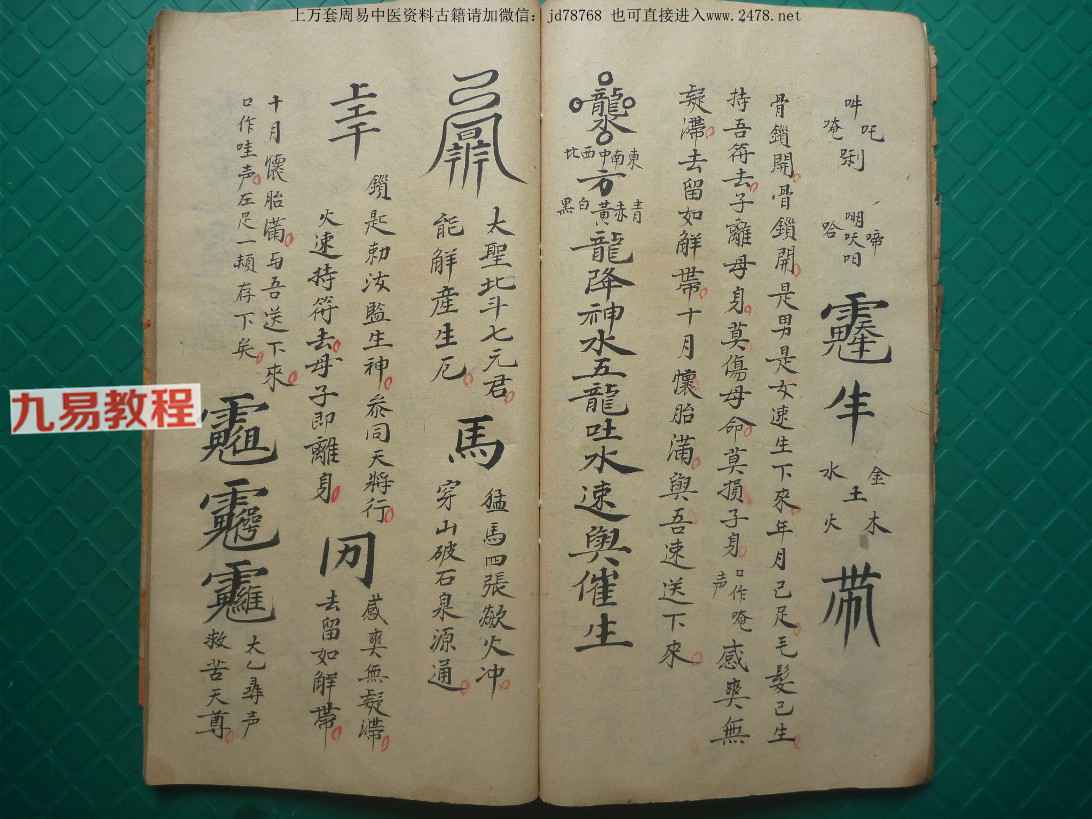 上万套周易中医资料古籍请加微信：jd78768 也可直接进入www.2478.net
吽吒唵
唎
啼
哈
金木水火土
骨鎖開骨鎖開是男是女速生下來年月已足毛髮已生
持吾符去子離母身莫傷母命莫損子身口作唵声感奥無
疑滯去留如解帶十月懷胎滿與吾速送下來
東南中西北
方
青赤黃白黑
龍降神水五龍吐水速與催生
太聖北斗七元君
能解產生厄
馬
猛馬四張燄火冲
穿山破石泉源通
鎖匙勅汝監生神叅同天將行
火速持符去母子即離身
感奥無疑滯
去留如解帶
十月懷胎滿与吾送下來
口作哇声左足一頓存下矣
太乙尋声
救苦天尊
九易教程